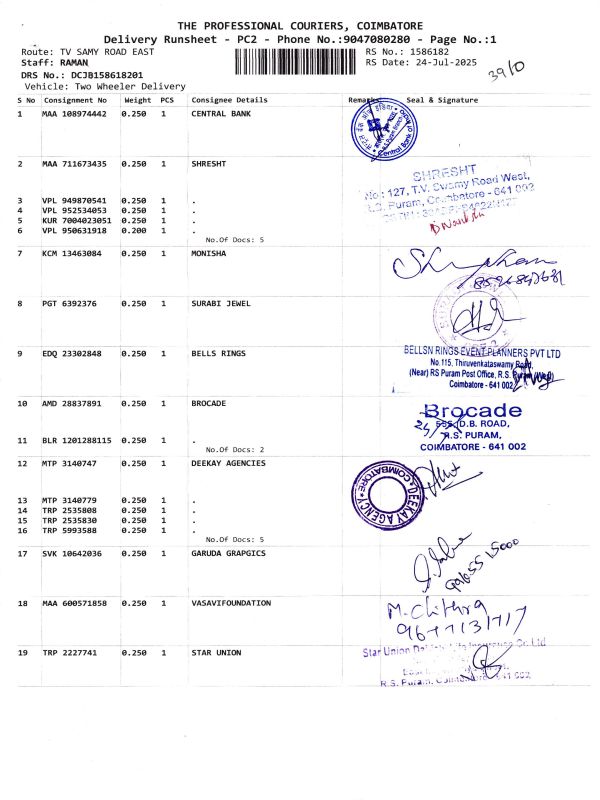 THE PROFESSIONAL COURIERS, COIMBATORE
Delivery Runsheet - PC2 - Phone No.:9047080280 - Page No.:1
Route: TV SAMY ROAD EAST
RS No.: 1586182
Staff: RAMAN
RS Date: 24-Jul-2025
DRS No.: DCJB158618201
39/0
Vehicle: Two Wheeler Delivery
S No Consignment No Weight PCS Consignee Details Remarks Seal & Signature
1 MAA 108974442 0.250 1 CENTRAL BANK
2 MAA 711673435 0.250 1 SHRESHT
SHRESHT
No: 127, T.V. Swamy Road West,
R.S. Puram, Coimbatore - 641 002
3 VPL 949870541 0.250 1 .
4 VPL 952534053 0.250 1 .
5 KUR 7004023051 0.250 1 .
6 VPL 950631918 0.200 1 .
No.Of Docs: 5
7 KCM 13463084 0.250 1 MONISHA
8 PGT 6392376 0.250 1 SURABI JEWEL
9 EDQ 23302848 0.250 1 BELLS RINGS
BELLSN RINGS EVENT PLANNERS PVT LTD
No.115, Thiruvenkataswamy Road,
(Near) RS Puram Post Office, R.S. Puram (West)
Coimbatore - 641 002
10 AMD 28837891 0.250 1 BROCADE
Brocade
D.B. ROAD,
R.S. PURAM,
COIMBATORE - 641 002
11 BLR 1201288115 0.250 1 .
No.Of Docs: 2
12 MTP 3140747 0.250 1 DEEKAY AGENCIES
DEEKAY AGENCY COIMBATORE
13 MTP 3140779 0.250 1 .
14 TRP 2535808 0.250 1 .
15 TRP 2535830 0.250 1 .
16 TRP 5993588 0.250 1 .
No.Of Docs: 5
17 SVK 10642036 0.250 1 GARUDA GRAPGICS
18 MAA 600571858 0.250 1 VASAVIFOUNDATION
M. Chithra
9677131717
19 TRP 2227741 0.250 1 STAR UNION
Star Union Dai-ichi Life Insurance Co. Ltd
R.S. Puram, Coimbatore - 641 002